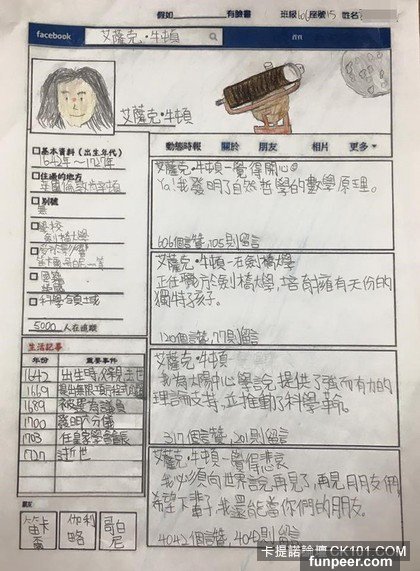 假如 有臉書 班級601座號15 姓名:
facebook 艾薩克·牛頓 首頁
艾薩克·牛頓
動態時報 關於 朋友 相片 更多
基本資料(出生年代)
1642年~1727年
住過的地方
英國倫敦
別號
無
學校
劍橋大學
國籍
英國
科學領域
5000 人在追蹤
艾薩克·牛頓-覺得開心
Ya!我發明了自然哲學的數學原理。
606個言讚,105則留言
艾薩克·牛頓-在劍橋大學
正任職於劍橋大學,培育擁有天份的
獨特孩子。
120個言讚,77則留言
艾薩克·牛頓
我為太陽中心學說,提供了強而有力的
理論支持,並推動了科學革命。
317個言讚,201則留言
艾薩克·牛頓-覺得悲哀
我必須向世界說再見了,再見朋友們,
希望下輩子,我還能當你們的朋友。
4042個言讚,4040則留言
生活記事
年份 重要事件
1642
1669
1689 被選為議員
1700 發明六分儀
1703 任皇家學會會長
1727 討世
朋友
笛卡
盃
伽利
略
哥白
尼
卡提諾論壇CK101.COM
funpeer.com